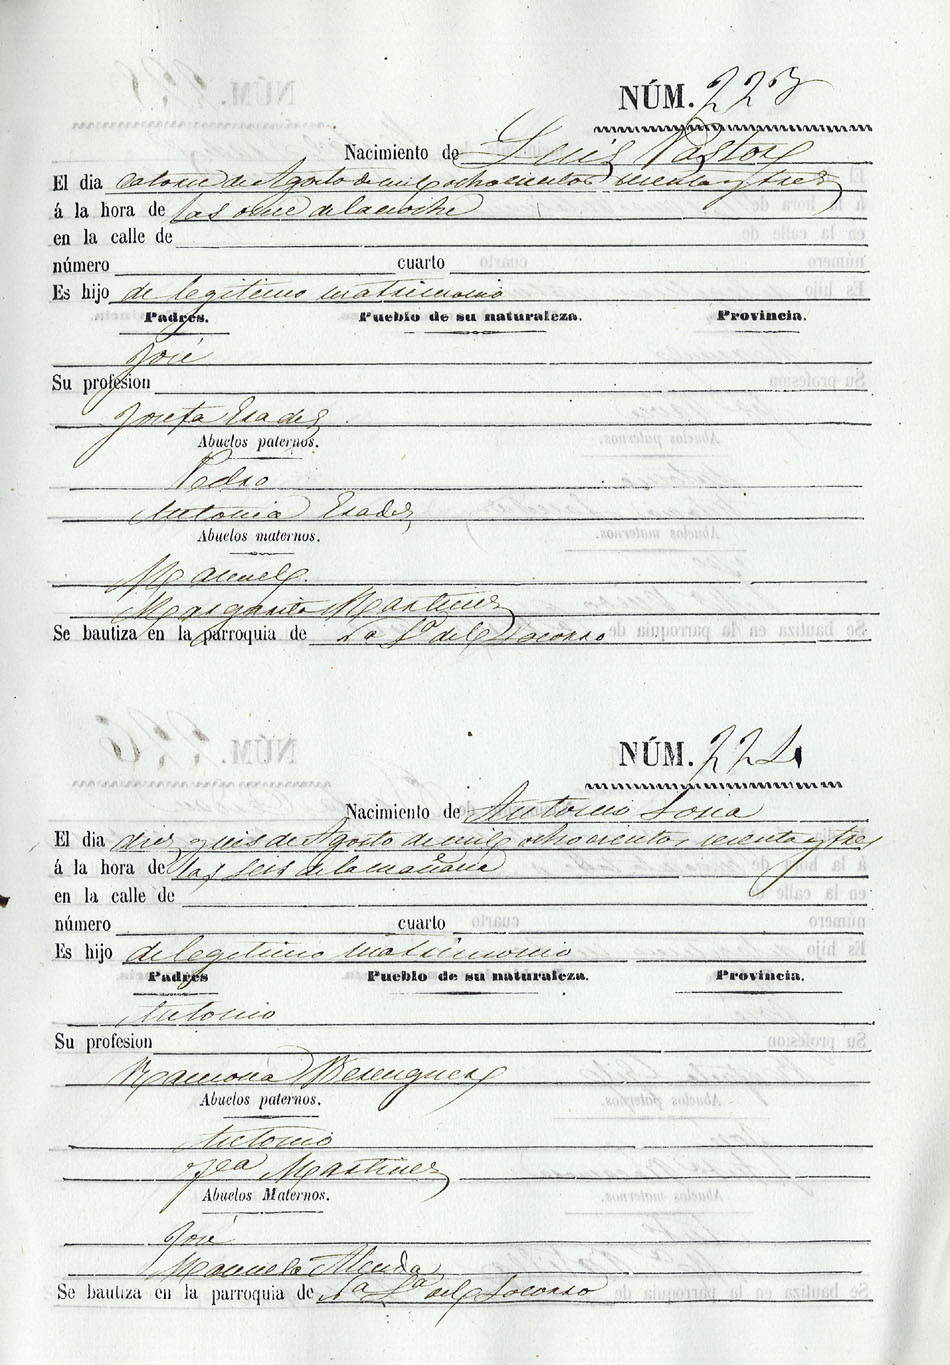 NÚM. 223
Nacimiento de Luis Pastor
El dia catorce de Agosto de mil ochocientos sesenta y tres
á la hora de las once de la noche
en la calle de
número cuarto
Es hijo de legitimo matrimonio
Padres. Pueblo de su naturaleza. Provincia.
José
Su profesion
Josefa
Abuelos paternos.
Pedro
Antonia
Abuelos maternos.
Manuel
Margarita Martinez
Se bautiza en la parroquia de Na Sa del Socorro
NÚM. 224
Nacimiento de Antonio Soria
El dia diez y seis de Agosto de mil ochocientos sesenta y tres
á la hora de las seis de la mañana
en la calle de
número cuarto
Es hijo de legitimo matrimonio
Padres Pueblo de su naturaleza. Provincia.
Antonio
Su profesion
Ramona Berenguer
Abuelos paternos.
Antonio
Martinez
Abuelos Maternos.
José
Manuela
Se bautiza en la parroquia de Na Sa del Socorro